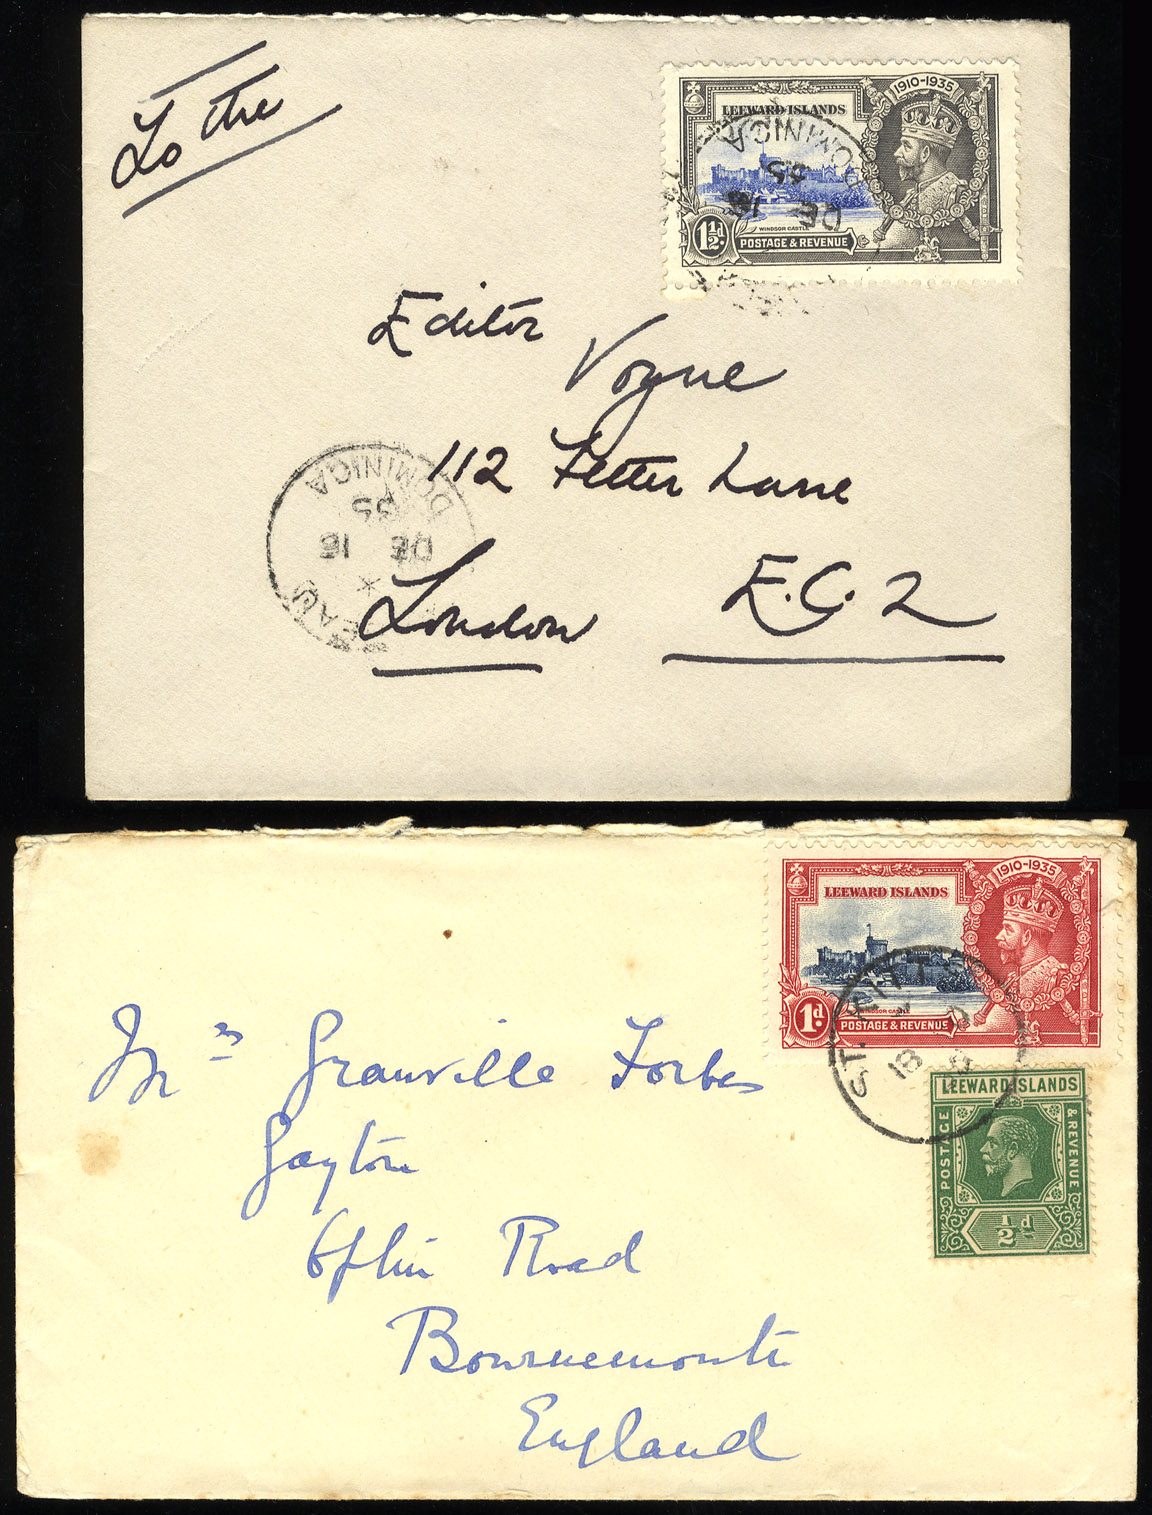 To the
1910-1935
LEEWARD ISLANDS
WINDSOR CASTLE
1½d.
POSTAGE & REVENUE
DOMINICA
35
DE 16
Editor
Vogue
112 Fetter Lane
London E.C.2
DOMINICA
35
DE 16
1910-1935
LEEWARD ISLANDS
WINDSOR CASTLE
1d.
POSTAGE & REVENUE
ST. KITT
18
LEEWARD ISLANDS
POSTAGE & REVENUE
½d
Mrs Granville Forbes
Gayton
Road
Bournemouth
England